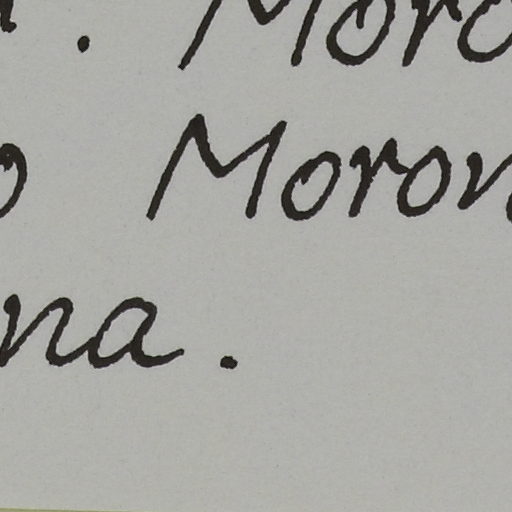 . Moro
o Moron
na.